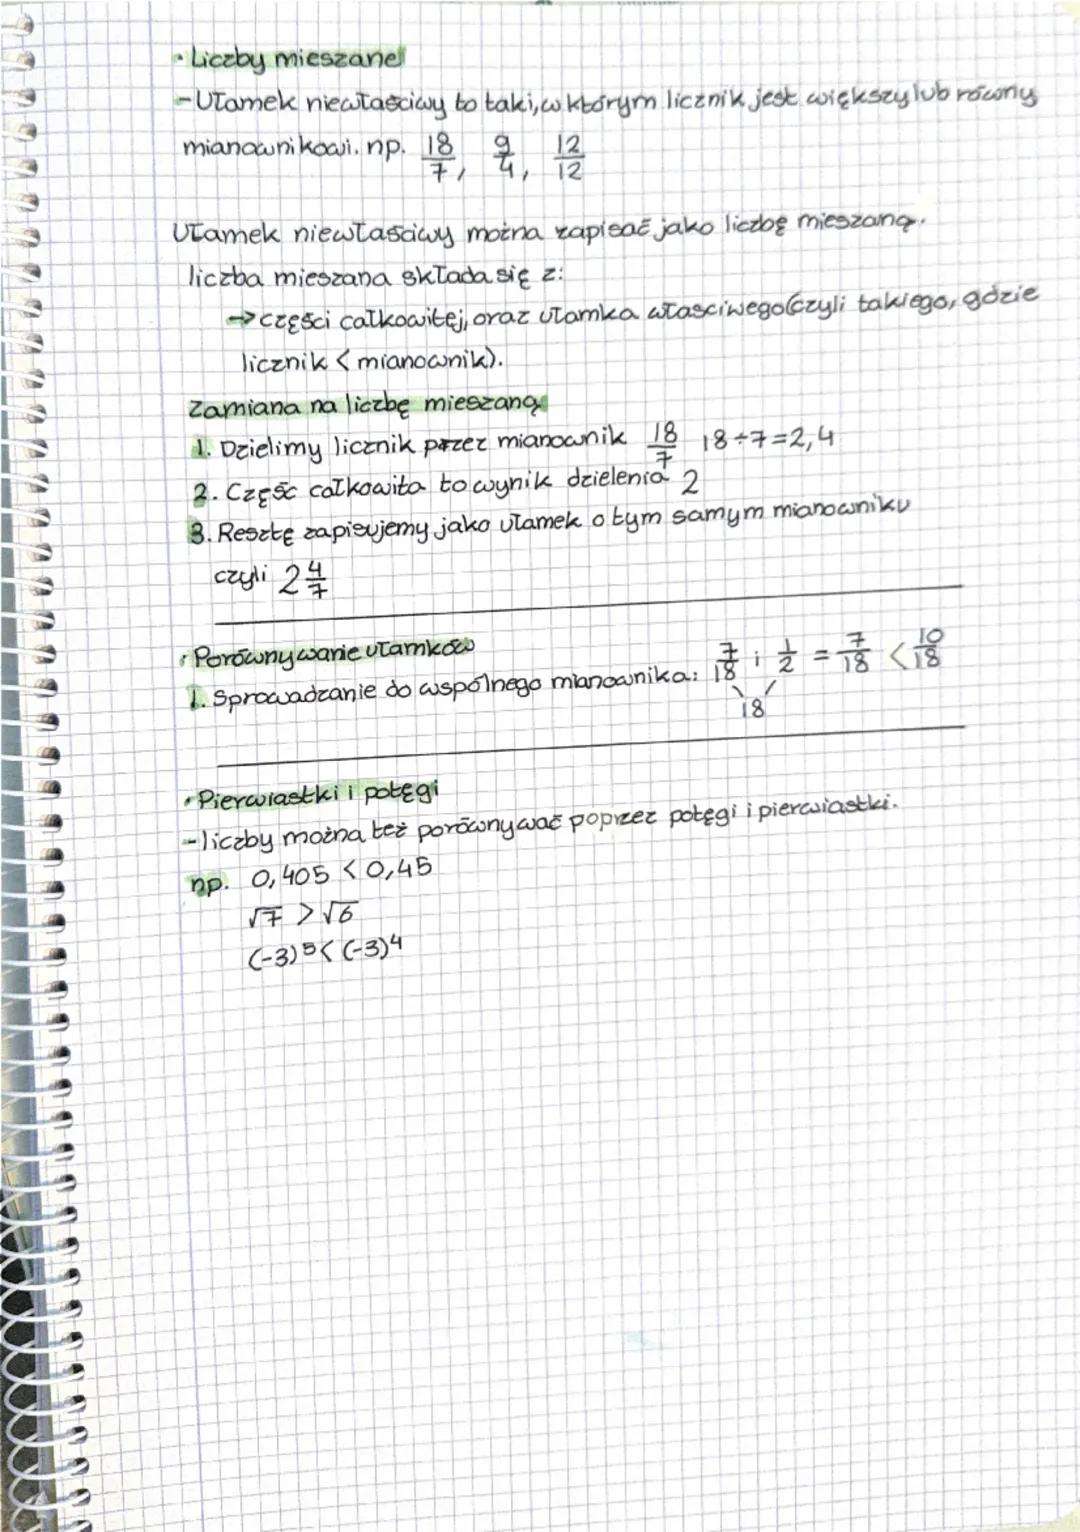 • Liczby mieszane
- Ułamek niewłaściwy to taki, w którym licznik jest większy lub równy
mianownikowi. np. 18/7, 9/4, 12/12
Ułamek niewłaściwy można zapisać jako liczbę mieszaną.
liczba mieszana składa się z:
→ części całkowitej, oraz ułamka własciwego (czyli takiego, gdzie
licznik < mianownik).
Zamiana na liczbę mieszaną
1. Dzielimy licznik przez mianownik 18/7 18÷7=2,4
2. Część całkowita to wynik dzielenia 2
3. Resztę zapisujemy jako ułamek o tym samym mianowniku
czyli 2 4/7
• Porównywanie ułamków
1. Sprowadzanie do wspólnego mianownika: 7/18 i 1/2 = 7/18 < 10/18
18
• Pierwiastki i potęgi
- liczby można też porównywać poprzez potęgi i pierwiastki.
np. 0,405 < 0,45
√7 > √6
(-3)⁵ < (-3)⁴